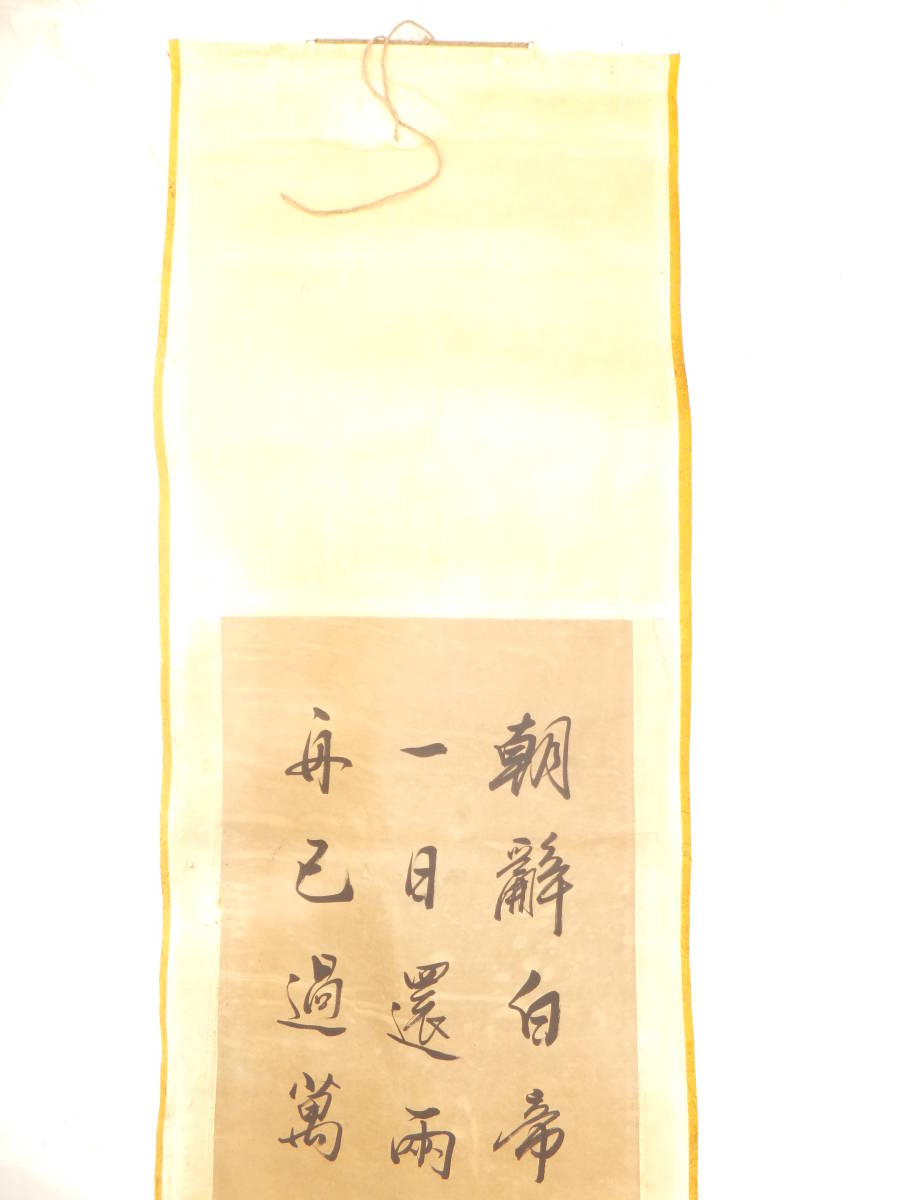 朝辭白帝
一日還兩
舟已過萬